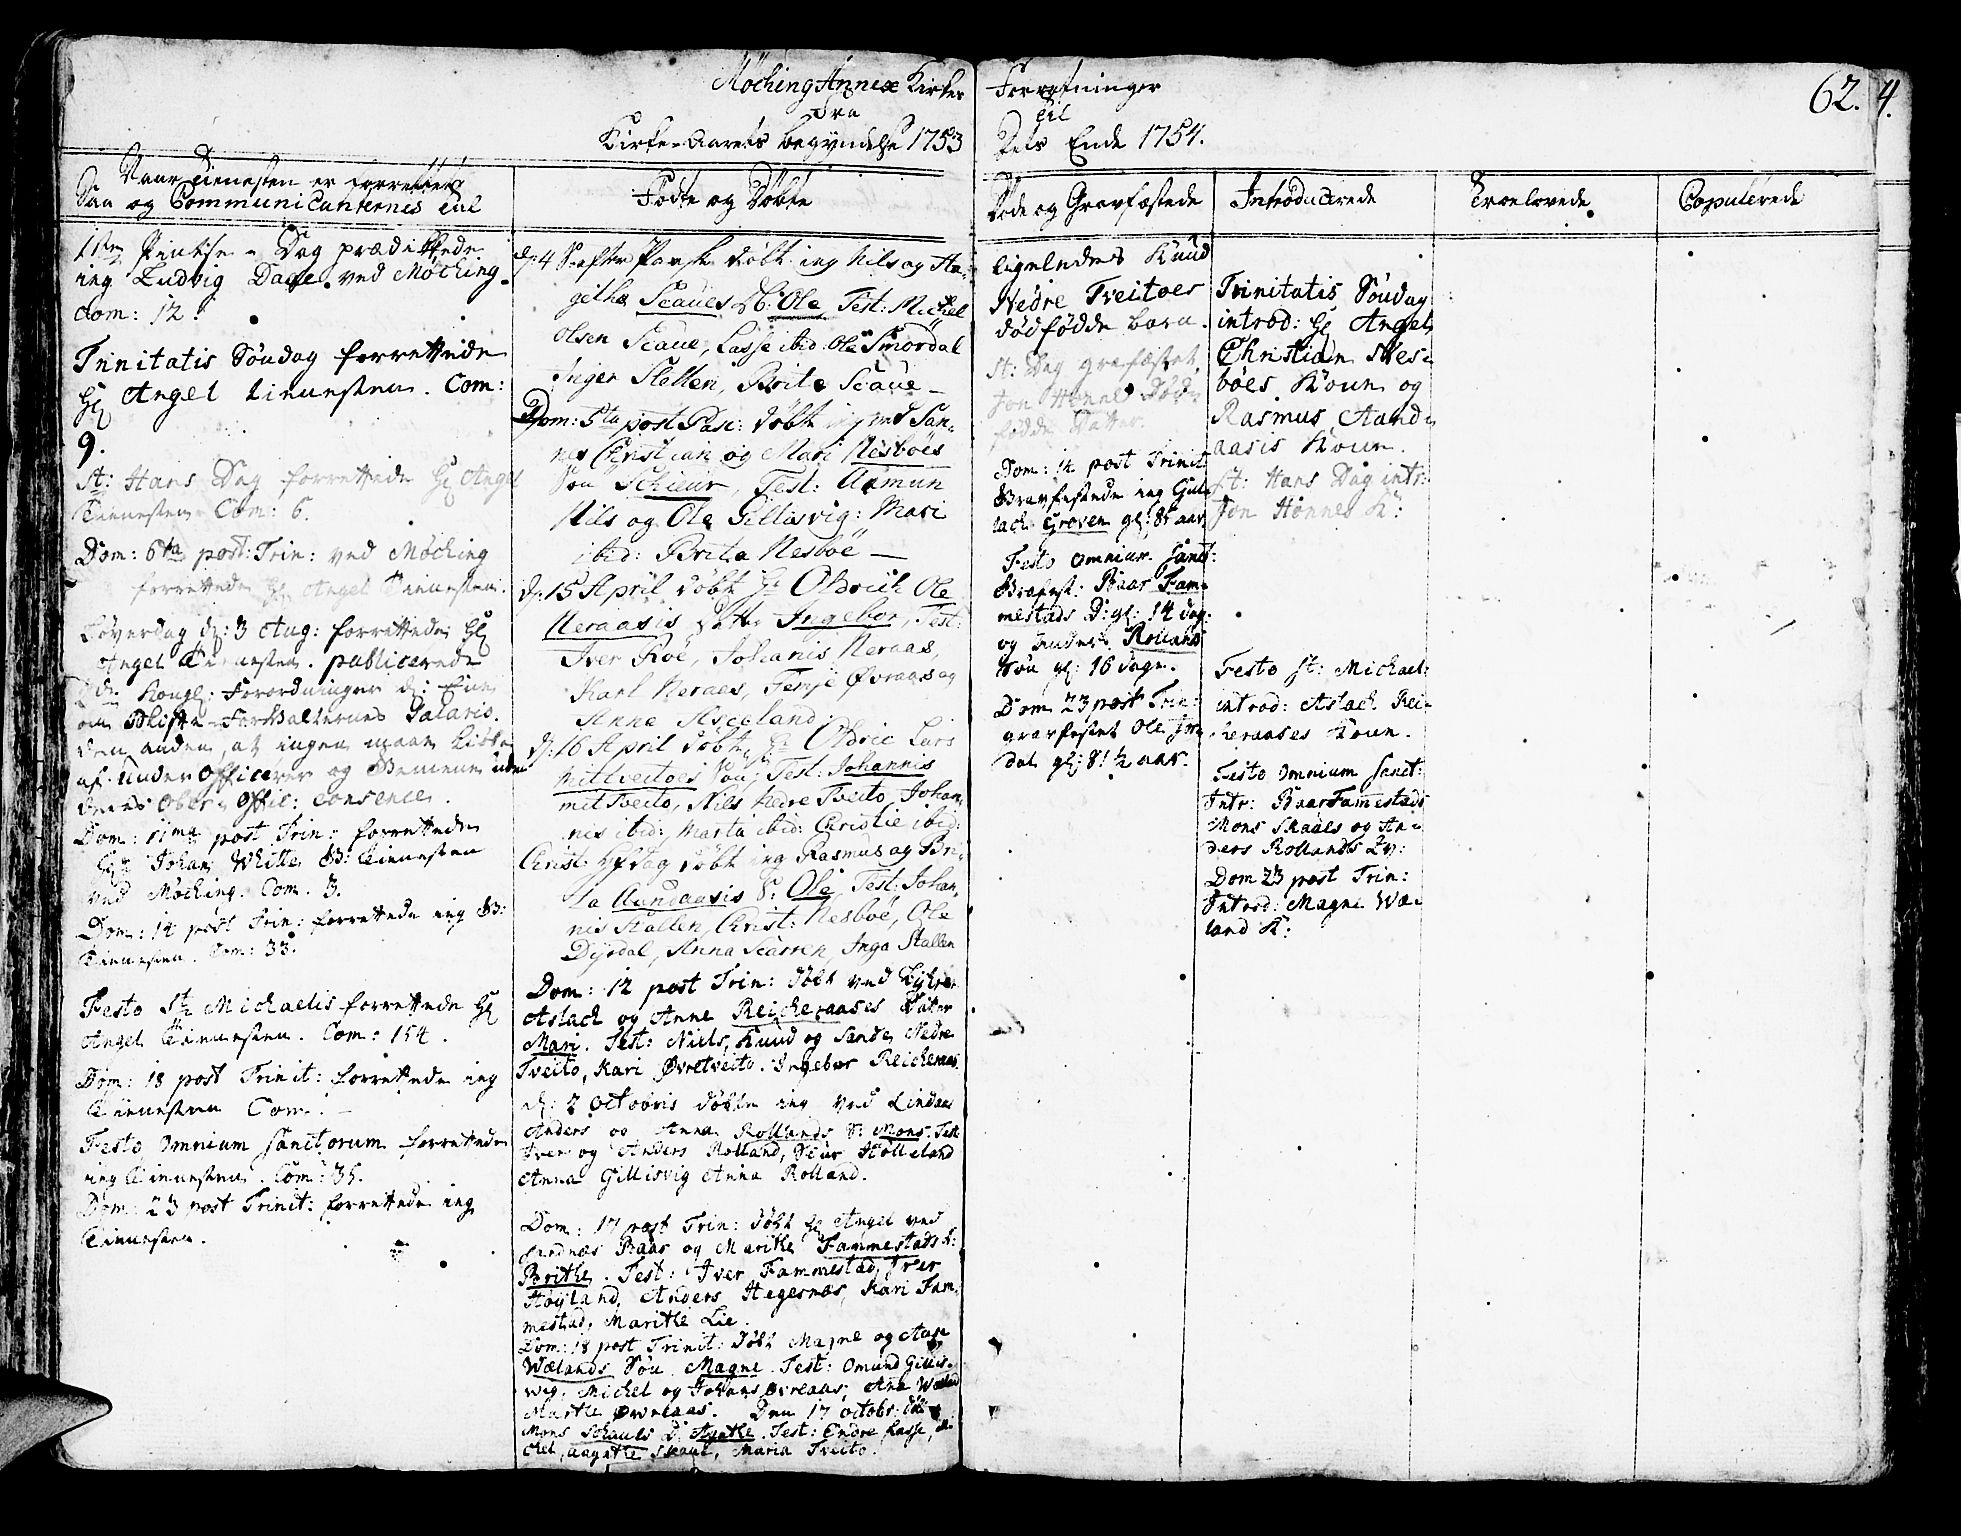 Møching Annex Kirkes Forretninger
fra til
Kirke-Aarets begyndelse 1753 Dets Ende 1754.
62.
4.
Naar Tienesten er forrettet
Saa og Communicanternes tal
1ste Pintse-Dag prædikkede
ieg Ludvig Daae ved Møching
Com: 12.
Trinitatis Søndag forrettede
Hr Angel tienesten. Com:
9.
St: Hans Dag forrettede Hr Angel
Tienesten Com: 6.
Dom: 6ta post: Trin: ved Møching
forrettede Hr Angel Tienesten.
Løverdag d: 3 Aug: forrettede Hr
Angel Tienesten. publicerede
Kongl: Forordninger d: Een
om Salario.
den anden, at ingen maae
af Under Officerer og Gemene uden
deres Ober Offic: consence.
Dom: 11ma post Trin: forrettede
Hr Johan Whitte G: tienesten
ved Møching. Com. 3.
Dom: 14 post Trin: forrettede ieg G:
Tienesten. Com: 33.
Festo St Michaelis forrettede Hr
Angel Tienesten. Com: 154.
Dom: 18 post Trinit: forrettede ieg
Tienesten Com. –
Festo Omnium Sanctorum forrettede
ieg Tienesten. Com: 35.
Dom: 23 post Trinit: forrettede ieg
Tienesten.
Fødte og Døbte
d: 4 S: efter Paaske døbt ieg Nils og An-
githe Scaues B: Ole, Test: Michel
Olsen Scaue, Lasse ibid. Ole Smørdal
Inger Stellen, Brite Scaue –
Dom: 5ta post Pasc: døbt ieg ved San-
nes Christian og Mari Nesbøes
Søn Schieur, Test: Aamun
Nils og Ole Gillisvig: Mari
ibid: Brita Nesbøe –
d: 15 April døbt Hr Oldrich Ole
Neraasis datter Ingebor, Test:
Iver Röe, Johanis Neraas,
Karl Neraes, Terje Øvraas og
Anne Aseeland.
d: 16 April døbt Hr Oldric Lars
Mittveitoes Søn, Test: Johannis
mit Tveito, Nils Nedre Tveito, Johan-
nis ibid: Marta ibid: Christie ibid:
Christ: Hf dag døbt ieg Rasmus og Bri-
ta Aundaasis S: Ole, Test: Johan-
nis Stallen, Christ: Nesboe, Ole
Dyrdal, Anna Scarren, Inga Stallen
Dom: 12 post Trin: døbt ved
Aslach og Anne Reicheraases Dater
Mari. Test: Niels, Knud og Sande Nedre
Tveito, Kari Øvretveito. Ingebor Reicheraas.
d: 2 Octobris døbte ieg ved Lindaas
Anders og Anna Rollands S: Mons. Test
Iver og Anders Rolland, Siur Hölleland
Anna Gillisvig Anna Rolland.
Dom: 17 post Trin: døbt Hr Angel ved
Sandnæs Baar og Marithe Fammestads D:
Brithe. Test: Iver Fammestad, Iver
Høyland, Anders Hegernæs, Kari Fam-
mestad, Marithe Lie.
Dom: 18 post Trinit: døbt Magne og Aase
Wælands Søn Magne. Test: Omund Gillis-
wig, Michel og Johans Øvreaas, Ana Wæland
Marthe Øvreaas. Den 17 Octobr: døbt
Mons Schaues D. Agathe. Test: Endre, Lasse, Mi-
chel, Aagathe Skaue, Maria Tveito.
Døde og Gravfæstede
ligeledes Knud
Nedre Tveitoes
dødfødde barn.
St: Dag gravfæstet
Jon Hønnes Død-
fødde Datter.
Dom: 14 post Trinit
Gravfestede ieg Gut-
lach Groven gl: 85 aar,
Festo Omnium Sanct:
Gravfest: Baar Fam-
mestads D: gl: 14 dag:
og Anders Rollands
Søn gl: 16 dage.
Dom 23 post Trin:
gravfestet Ole
dal gl: 81 ½ aar.
Introducerede
Trinitatis Søndag
introd: Hr Angel
Christian Nes-
bøes Kone og
Rasmus Aand-
aasis Kone.
St: Hans Dag intr:
Jon Hønnes K:
Festo St: Michael:
introd: Aslach Rei-
cheraases Kone.
Festo Omnium Sanct:
Intr: Baar Famestads
Mons Skaues og An-
ders Rollands Qv:
Dom 23 post Trin:
Introd: Magne Wæ-
land K:
Troelovede
Copulerede